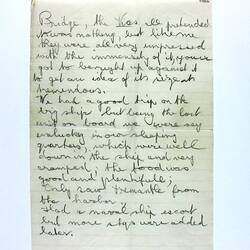 Bridge, the Kos all pretended
it was nothing, but like me
they were all very impressed
with the immensity of it, you've
got to be right up against it
to get an idea of its size &
tremendous.
We had a good trip on the
big ship but being the last
unit on board we were very
unlucky in our sleeping
quarters, which were well
down in the ship and very
cramped; the food was
good and plentiful;
Only saw Fremantle from
the harbor,
Had a naval ship escort
but more ships were added
later.